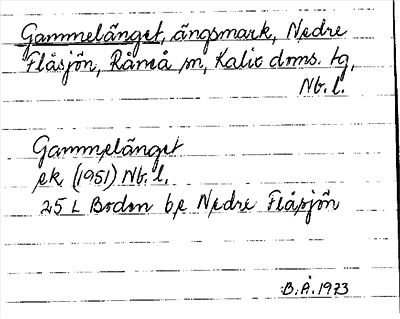 Gammelänget, ängsmark, Nedre
Flåsjön, Råneå sn, Kalix doms. tg,
Nb. l.
Gammelänget
ek. (1951) Nb. l.
25 L Boden be Nedre Flåsjön
B. Å. 1973